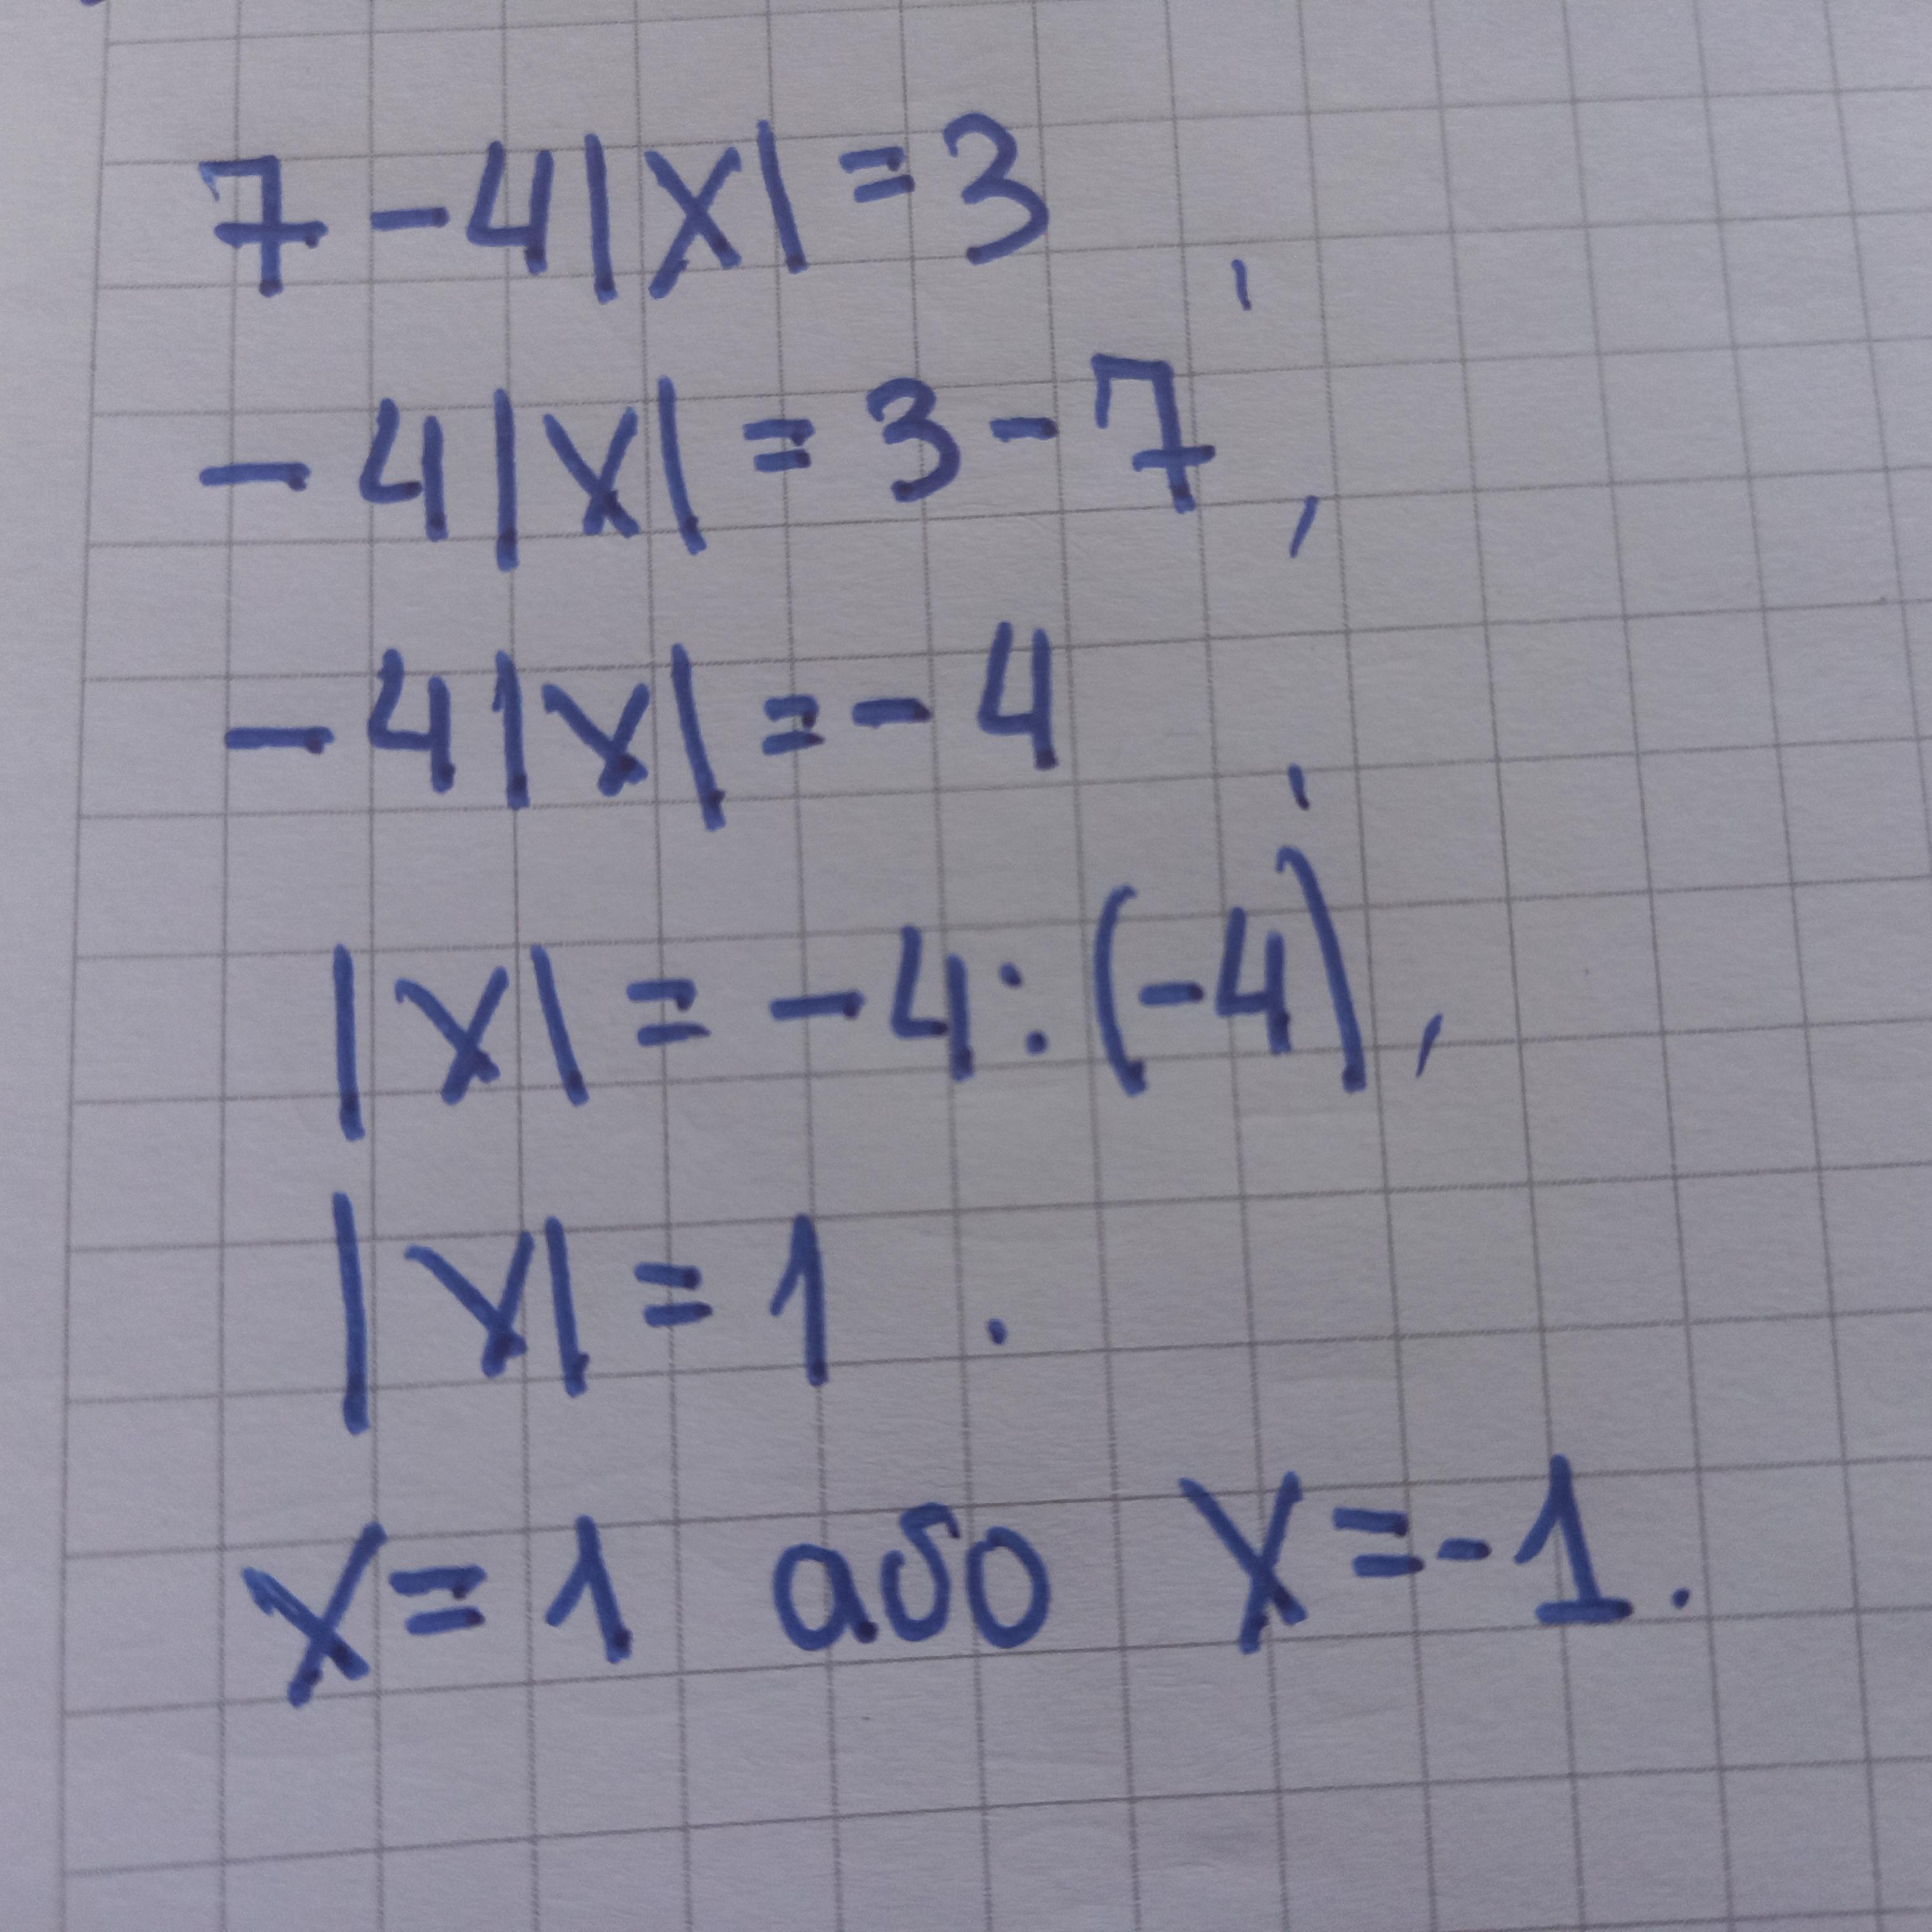 7-4|x|=3,
-4|x|=3-7,
-4|x|=-4,
|x|=-4:(-4),
|x|=1.
x=1 або x=-1.